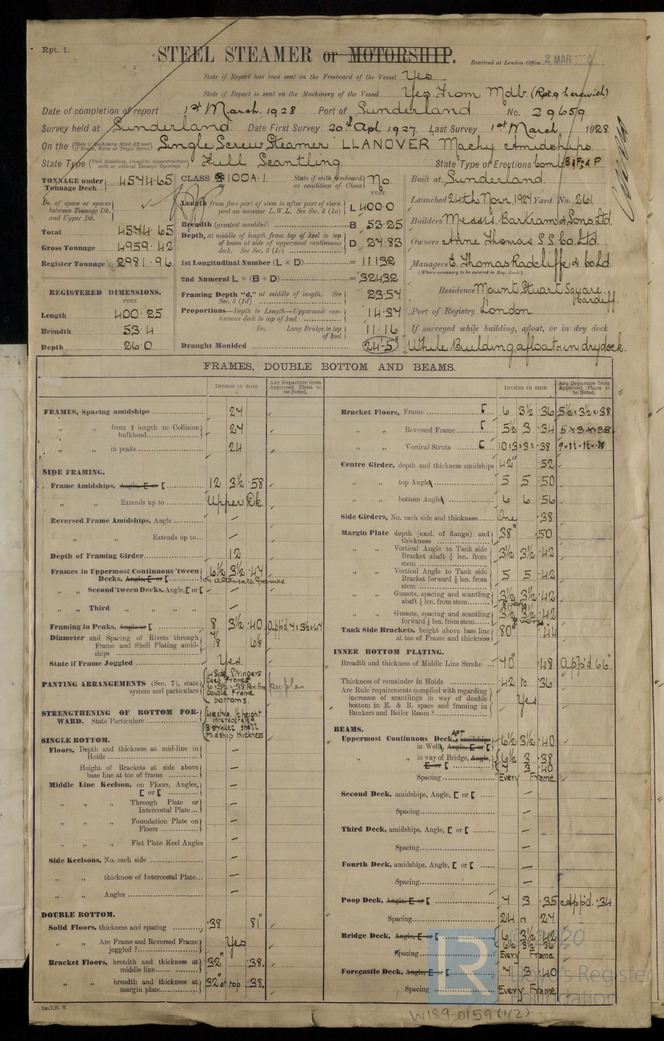 Rpt. 1.
STEEL STEAMER or MOTORSHIP.
Received at London Office 2 MAR
State if Report has been sent on the Freeboard of the Vessel Yes
State if Report is sent on the Machinery of the Vessel Yes From Mdb. (Rpt 9 herewith)
Date of completion of report 1st March. 1928 Port of Sunderland No. 29659
Survey held at Sunderland Date First Survey 20th Apl. 1927 Last Survey 1st March 1928
On the Single Screw Steamer LLANOVER Machy Amidships
State Type Full Scantling State Type of Erections
TONNAGE under Tonnage Deck 4574.65
CLASS 100A.1. State if with freeboard as condition of Class No
Built at Sunderland
Launched 24th Nov. 1927 Yard No. 261
Total 4574.65
Gross Tonnage 4959.42
Register Tonnage 2981.96
Length from fore part of stem to after part of stern post on summer L.W.L. See Sec. 3 (1a) L 400.0
Breadth (greatest moulded) B 53.25
Depth, at middle of length from top of keel to top of beam at side of uppermost continuous deck. See Sec. 3 (1c) D 27.83
1st Longitudinal Number (L × D) = 11132
2nd Numeral L × (B + D) = 32432
Framing Depth "d," at middle of length. See Sec. 3 (1d) 23.57
Proportions—Depth to Length—Uppermost continuous deck to top of keel 14.37
Do. Long Bridge to top of keel 11.16
Draught Moulded 24-5
Builders Messrs Bartram & Sons Ltd.
Owners Anne Thomas S.S. Co. Ltd.
Managers E. Thomas Radcliffe & Co Ld.
Residence Mount Stuart Square, Cardiff.
Port of Registry London
If surveyed while building, afloat, or in dry dock
While Building, afloat & in drydock.
REGISTERED DIMENSIONS.
FEET.
Length 400.25
Breadth 53.4
Depth 26.0
FRAMES, DOUBLE BOTTOM AND BEAMS.
INCHES IN SHIP.
Any Departure from Approved Plans to be Noted.
FRAMES, Spacing amidships 27
" " from 1/5 length to Collision bulkhead 27
" " in peaks 24
SIDE FRAMING.
Frame Amidships, Angle, E or [ 12 3½ .58
" " Extends up to Upper Dk.
Reversed Frame Amidships, Angle —
" " Extends up to —
Depth of Framing Girder 12
Frames in Uppermost Continuous 'tween Decks, Angle, E or [ 6½ 3½ .47
on alternate frames
" " Second 'tween Decks, Angle, [ or [ —
" " Third " " " —
Framing in Peaks, Angle or [ 8 3½ .40
Diameter and Spacing of Rivets through Frame and Shell Plating amidships 7/8
State if Frame Joggled Yes
PANTING ARRANGEMENTS (Sec. 7), state system and particulars
STRENGTHENING OF BOTTOM FORWARD. State Particulars
SINGLE BOTTOM.
Floors, Depth and thickness at mid-line in Holds —
Height of Brackets at side above base line at toe of frame —
Middle Line Keelson, on Floors, Angles, [ or [ —
" " Through Plate or Intercostal Plate —
" " Foundation Plate on Floors —
" " Flat Plate Keel Angles —
Side Keelsons, No. each side —
" " thickness of Intercostal Plate —
" " Angles —
DOUBLE BOTTOM.
Solid Floors, thickness and spacing .38 81"
" " Are Frame and Reversed Frame joggled? Yes
Bracket Floors, breadth and thickness at middle line 32" .38
" " breadth and thickness at margin plate 32" at top .38
Bracket Floors, Frame [ 6 3½ .36 5½ × 3½ × .38
" " Reversed Frame [ 5½ 3 .34 5 × 3 × .38
" " Vertical Struts [
Centre Girder, depth and thickness amidships 42" .52
" " top Angle 5 5 .50
" " bottom Angle 6 6 .56
Side Girders, No. each side and thickness One .38
Margin Plate depth (excl. of flange) and thickness 38" .50
" " Vertical Angle to Tank side Bracket abaft ¼ len. from stem 3½ 3½ .42
" " Vertical Angle to Tank side Bracket forward ¼ len. from stem 5 5 .42
" " Gussets, spacing and scantling abaft ¼ len. from stem 3½ 3½ .42
" " Gussets, spacing and scantling forward ¼ len. from stem 3½ 3½ .42
Tank Side Brackets, height above base line at toe of Frame and thickness 80" .44
INNER BOTTOM PLATING.
Breadth and thickness of Middle Line Strake 70" .48 app'd 66"
Thickness of remainder in Holds .42 to .36
Are Rule requirements complied with regarding increases of scantlings in way of double bottom in E. & B. space and framing in Bunkers and Boiler Room? Yes
BEAMS.
Uppermost Continuous Deck, amidships AFT in Wells, Angle, E or [ 6½ 3½ .40
" " in way of Bridge, Angle, E or [ 6½ 3 .38
Spacing Every Frame
Second Deck, amidships, Angle, [ or [ —
Spacing —
Third Deck, amidships, Angle, [ or [ —
Spacing —
Fourth Deck, amidships, Angle, [ or [ —
Spacing —
Poop Deck, Angle, E or [ 7 3 .35 app'd .34
Spacing 24 & 27
Bridge Deck, Angle, E or [
Spacing Every Frame
Forecastle Deck, Angle, E or [ 7 3 .40
Spacing Every Frame
© 2020
Lloyd's Register
Foundation
W189-0159 (1/2)